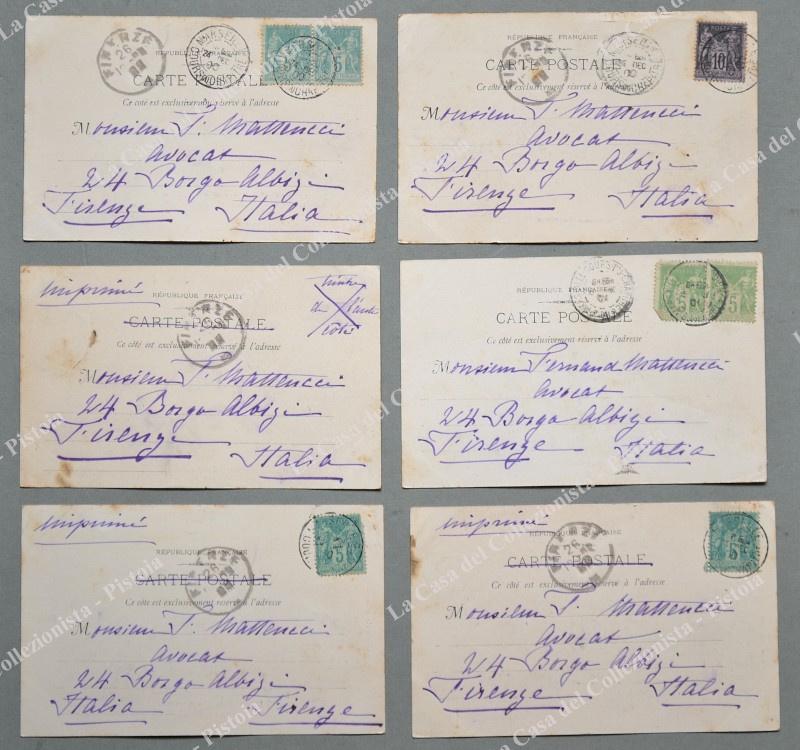 FIRENZE
26
RÉPUBLIQUE FRANÇAISE
CARTE POSTALE
Ce côté est exclusivement réservé à l'adresse
Monsieur F. Matteucci
Avocat
24 Borgo Albizi
Firenze Italia
FIRENZE
RÉPUBLIQUE FRANÇAISE
POSTE
10
CARTE POSTALE
DEC
Ce côté est exclusivement réservé à l'adresse
Monsieur F. Matteucci
Avocat
24 Borgo Albizi
Firenze Italia
imprimé
timbre
RÉPUBLIQUE FRANÇAISE
de l'autre
CARTE POSTALE
côté
FIRENZE
Ce côté est exclusivement réservé à l'adresse
Monsieur F. Matteucci
24 Borgo Albizi
Firenze
Italia
RÉPUBLIQUE FRANÇAISE
5
CARTE POSTALE
Ce côté est exclusivement réservé à l'adresse
Monsieur Fernand Matteucci
Avocat
24 Borgo Albizi
Firenze Italia
imprimé
RÉPUBLIQUE FRANÇAISE
5
CARTE POSTALE
FIRENZE
26
Ce côté est exclusivement réservé à l'adresse
Monsieur F. Matteucci
Avocat
24 Borgo Albizi
Italia Firenze
imprimé
RÉPUBLIQUE FRANÇAISE
5
CARTE POSTALE
FIRENZE
26
Ce côté est exclusivement réservé à l'adresse
Monsieur F. Matteucci
Avocat
24 Borgo Albizi
Firenze Italia
La Casa del Collezionista - Pistoia